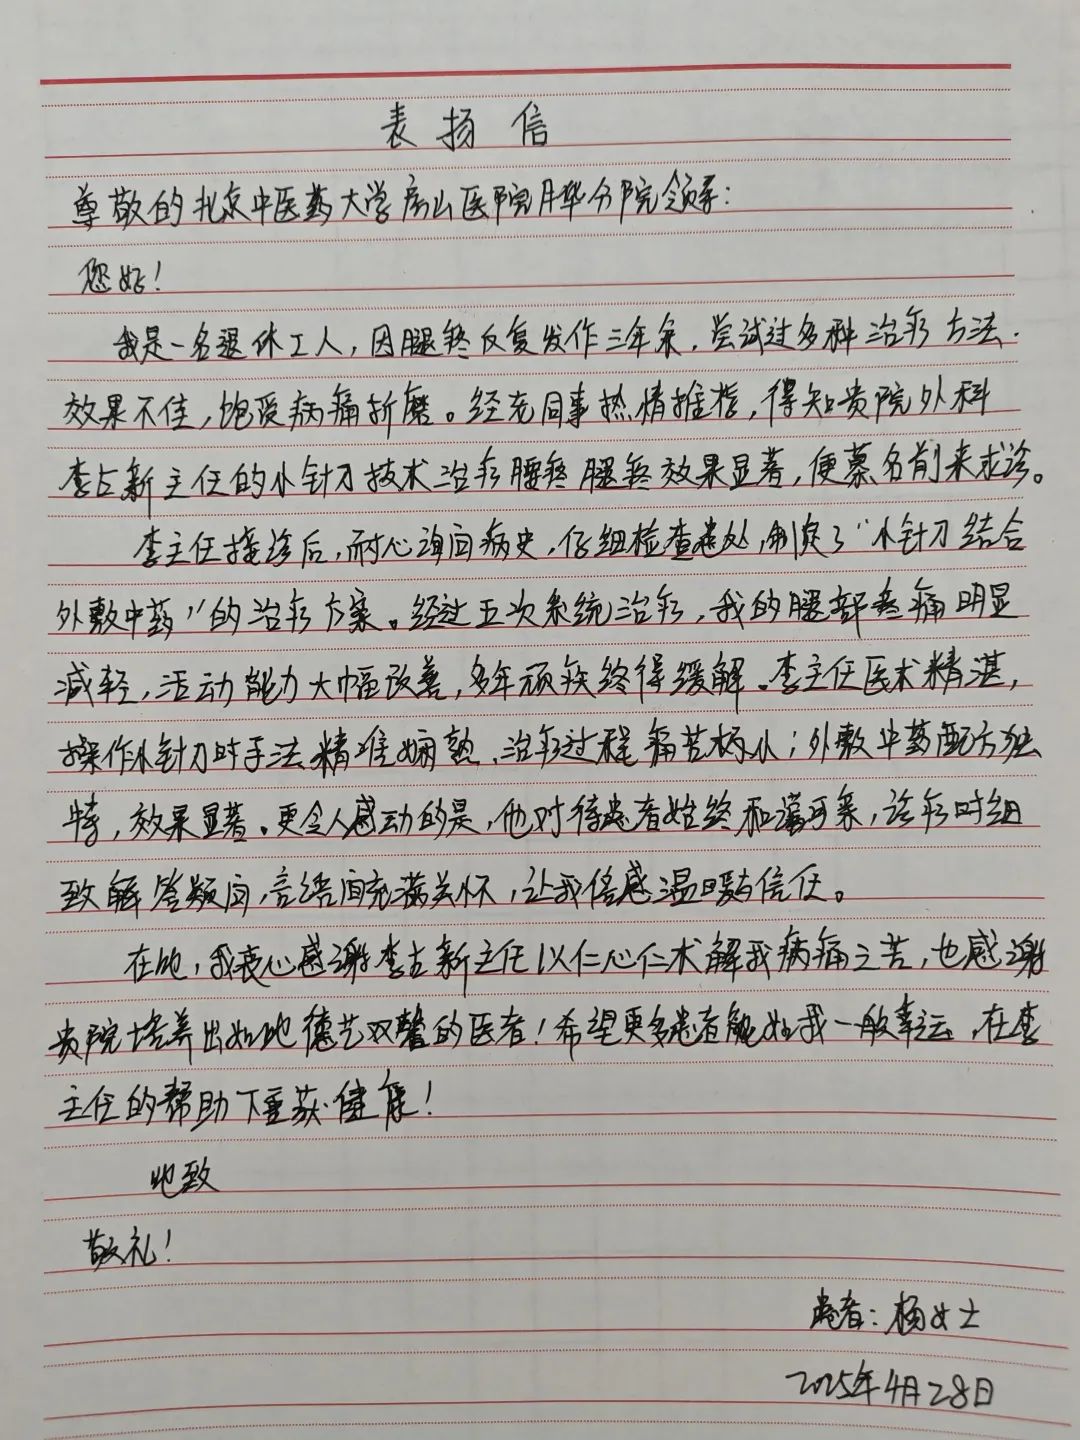 表扬信
尊敬的北京中医药大学房山医院月华分院领导:
您好!
我是一名退休工人,因腿疼反复发作三年余,尝试过多种治疗方法.
效果不佳,饱受病痛折磨。经老同事热情推荐,得知贵院外科
李占新主任的小针刀技术治疗腰疼腿疼效果显著,便慕名前来求诊。
李主任接诊后,耐心询问病史,仔细检查患处,制定了“小针刀结合
外敷中药”的治疗方案。经过五次系统治疗,我的腿部疼痛明显
减轻,活动能力大幅改善,多年顽疾终得缓解。李主任医术精湛,
操作小针刀时手法精准娴熟、治疗过程痛苦极小;外敷中药配方独
特,效果显著。更令人感动的是,他对待患者始终和蔼可亲,诊疗时细
致解答疑问,言语间充满关怀,让我倍感温暖与信任。
在此,我衷心感谢李占新主任以仁心仁术解我病痛之苦,也感谢
贵院培养出如此德艺双馨的医者!希望更多患者能如我一般幸运,在李
主任的帮助下重获健康!
此致
敬礼!
患者:杨女士
2025年4月28日